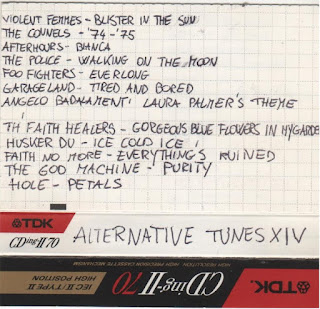 VIOLENT FEMMES - BLISTER IN THE SUN
THE CONNELS - '74 - '75
AFTERHOURS - BIANCA
THE POLICE - WALKING ON THE MOON
FOO FIGHTERS - EVERLONG
GARAGELAND - TIRED AND BORED
ANGELO BADALAMENTI LAURA PALMER'S THEME
TH FAITH HEALERS - GORGEOUS BLUE FLOWERS IN MY GARDEN
HUSKER DU - ICE COLD ICE
FAITH NO MORE - EVERYTHING'S RUINED
THE GOD MACHINE - PURITY
HOLE - PETALS
TDK
CDing-II 70
ALTERNATIVE TUNES XIV
TDK.
CDing-II 70
HIGH RESOLUTION · HIGH PRECISION CASSETTE MECHANISM
IEC II / TYPE II
HIGH POSITION